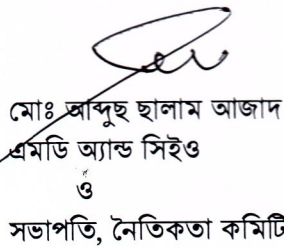 মোঃ আব্দুছ ছালাম আজাদ
এমডি অ্যান্ড সিইও
ও
সভাপতি, নৈতিকতা কমিটি